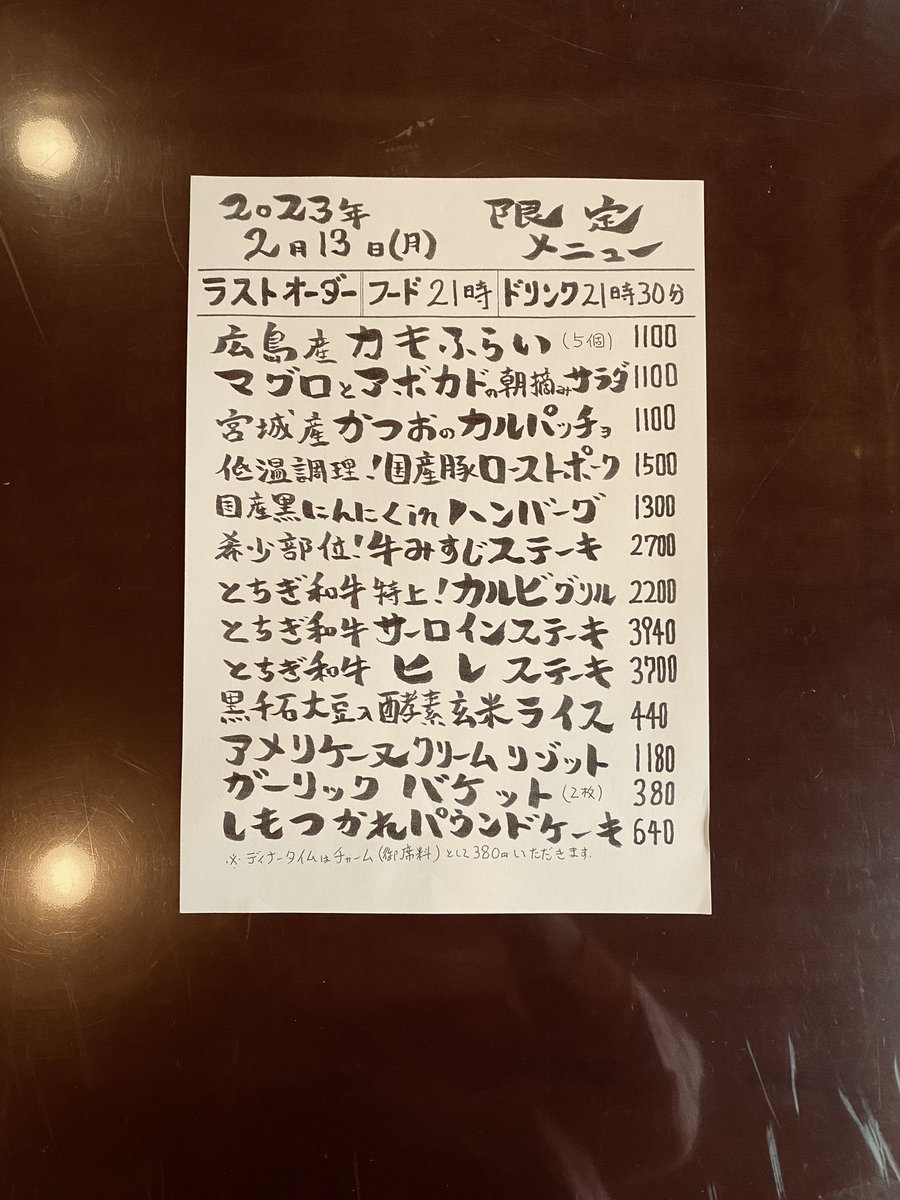 2023年
2月13日(月)
限定
メニュー
ラストオーダー フード21時 ドリンク21時30分
広島産カキふらい(5個) 1100
マグロとアボカドの朝摘みサラダ 1100
宮城産かつおのカルパッチョ 1100
低温調理!国産豚ローストポーク 1500
国産黒にんにくinハンバーグ 1300
希少部位!牛みすじステーキ 2700
とちぎ和牛特上!カルビグリル 2200
とちぎ和牛サーロインステーキ 3940
とちぎ和牛ヒレステーキ 3700
黒千石大豆入酵素玄米ライス 440
アメリケーヌクリームリゾット 1180
ガーリックバケット(2枚) 380
しもつかれパウンドケーキ 640
※ディナータイムはチャーム(御席料)として380円いただきます.